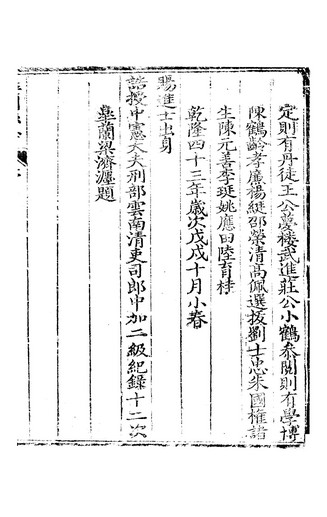 定則有丹徒王公夢樓武進莊公小鶴叅閱則有學博
陳鶴齡孝廉楊綎邵榮清高佩選拔劉士忠朱國權諸
生陳元善李珽姚應田陸育桂
乾隆四十三年歲次戊戌十月小春
賜進士出身
誥授中憲大夫刑部雲南清吏司郎中加二級紀錄十二次
臯蘭梁濟瀍題